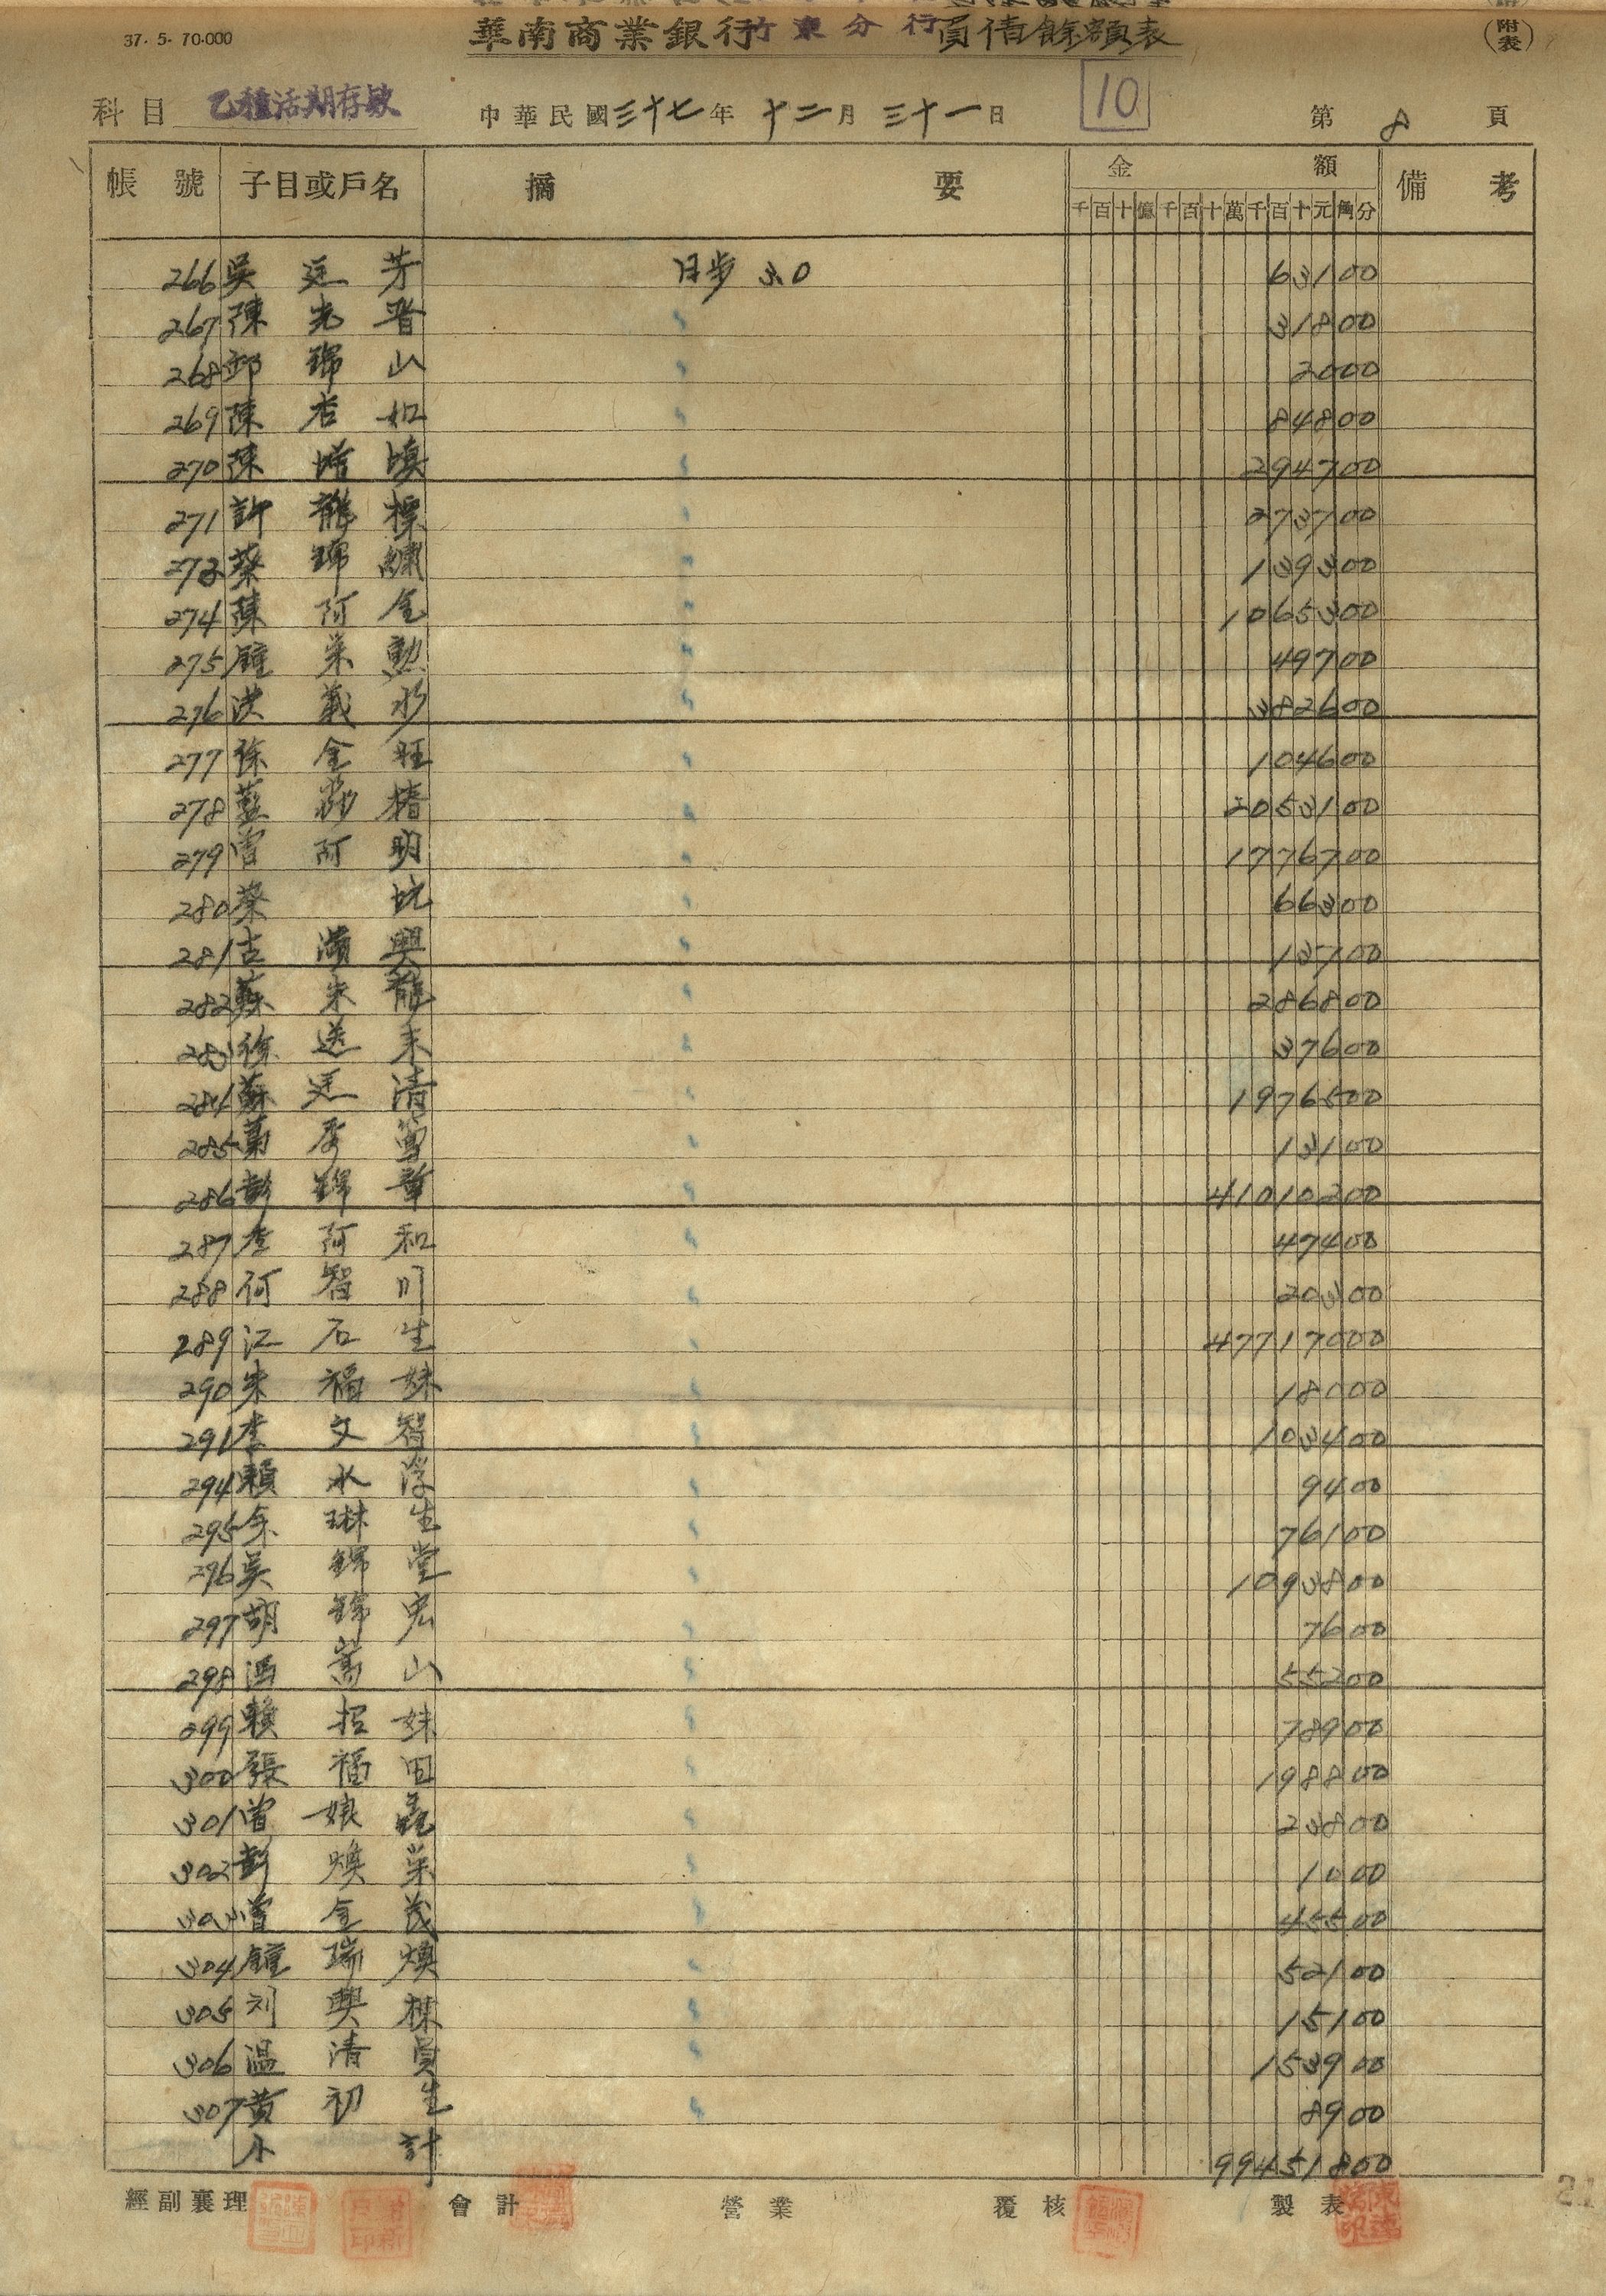 37. 5- 70.000
華南商業銀行竹東分行負債餘額表
(附表)
科目 乙種活期存款 中華民國三十七年 十二月 三十一日 10 第 8 頁
帳號 子目或戶名 摘要 金額 備考
千百十億千百十萬千百十元角分
266 吳廷芳 日步 3.0 63100
267 陳光晋 〃 31800
268 邱錦山 〃 2000
269 陳杏如 〃 84800
270 陳 〃 294700
271 許龍標 〃 273700
273 蔡錦繡 〃 139300
274 陳阿全 〃 1065300
275 鍾榮勲 〃 49700
276 洪義 〃 382600
277 徐金旺 〃 104600
278 藍 〃 2053100
279 曾阿明 〃 1776700
280 蔡 〃 66300
281 古滿興 〃 13700
282 蘇朱龍 〃 286800
283 徐送来 〃 37600
284 蘇廷清 〃 1976500
285 〃 13100
286 彭錦章 〃 41010200
287 李阿和 〃 47400
288 何智川 〃 20300
289 江石生 〃 47717000
290 朱福妹 〃 18000
291 李文智 〃 103400
294 賴水 〃 9400
295 余琳生 〃 76100
296 吳錦堂 〃 1093800
297 胡錦宏 〃 7600
298 馮嵩山 〃 55200
299 賴招妹 〃 78900
300 張福田 〃 198800
301 曾娘 〃 23800
302 彭煥榮 〃 1000
303 曾金茂 〃 45500
304 鍾瑞煥 〃 52100
305 刘興棟 〃 15100
306 温清員 〃 153900
307 黃初生 〃 8900
小計 99451800
經副襄理 會計 營業 覆核 製表
21